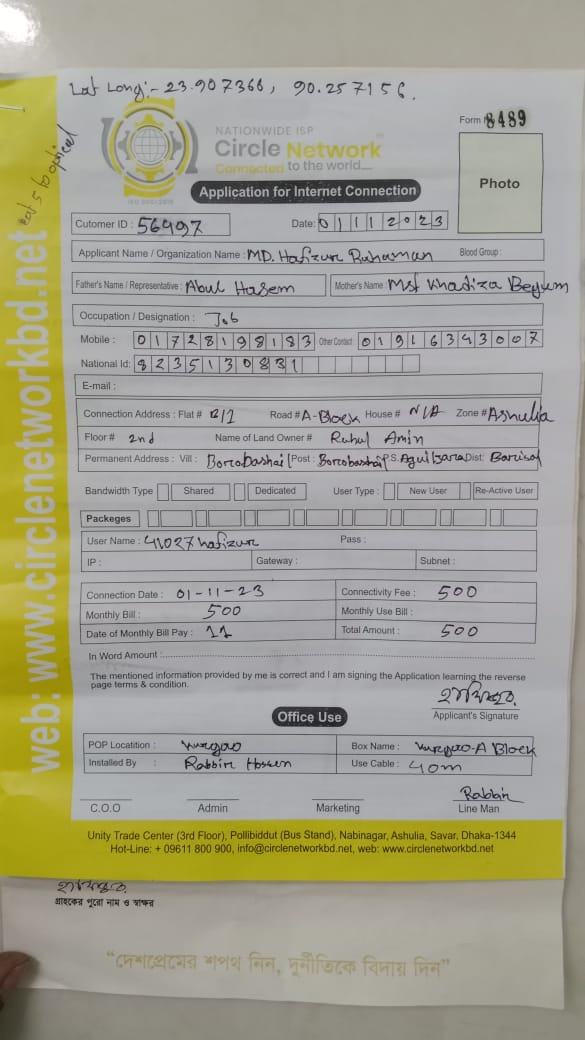 Lat Long:- 23.907366, 90.257156.
Form 8489
NATIONWIDE ISP
Circle Network
Connected to the world....
ISO 9001:2015
Application for Internet Connection
Photo
Cutomer ID : 56497
Date: 01112023
Applicant Name / Organization Name : MD. Hafizur Rahaman Blood Group :
Father's Name / Representative : Abul Hasem Mother's Name : Mst Khadiza Begum
Occupation / Designation : Job
Mobile : 01728198183 Other Contact 01916343007
National Id: 8235130831
E-mail :
Connection Address : Flat # 12/1 Road # A-Block House # N/A Zone # Ashulia
Floor # 2nd Name of Land Owner # Ruhul Amin
Permanent Address : Vill : Borobashail Post : Borobashail P.S. Aguiljara Dist: Barisal
Bandwidth Type Shared Dedicated User Type : New User Re-Active User
Packeges
User Name : 41027hafizur Pass :
IP : Gateway : Subnet :
Connection Date : 01-11-23 Connectivity Fee : 500
Monthly Bill : 500 Monthly Use Bill :
Date of Monthly Bill Pay : 11 Total Amount : 500
In Word Amount :
The mentioned information provided by me is correct and I am signing the Application learning the reverse
page terms & condition.
Applicant's Signature
Office Use
POP Locatition : Box Name : A Block
Installed By : Rabbir Hossen Use Cable : 40m
Rabbir
C.O.O Admin Marketing Line Man
Unity Trade Center (3rd Floor), Pollibiddut (Bus Stand), Nabinagar, Ashulia, Savar, Dhaka-1344
Hot-Line: + 09611 800 900, info@circlenetworkbd.net, web: www.circlenetworkbd.net
web: www.circlenetworkbd.net
গ্রাহকের পুরো নাম ও স্বাক্ষর
“দেশপ্রেমের শপথ নিন, দুর্নীতিকে বিদায় দিন”